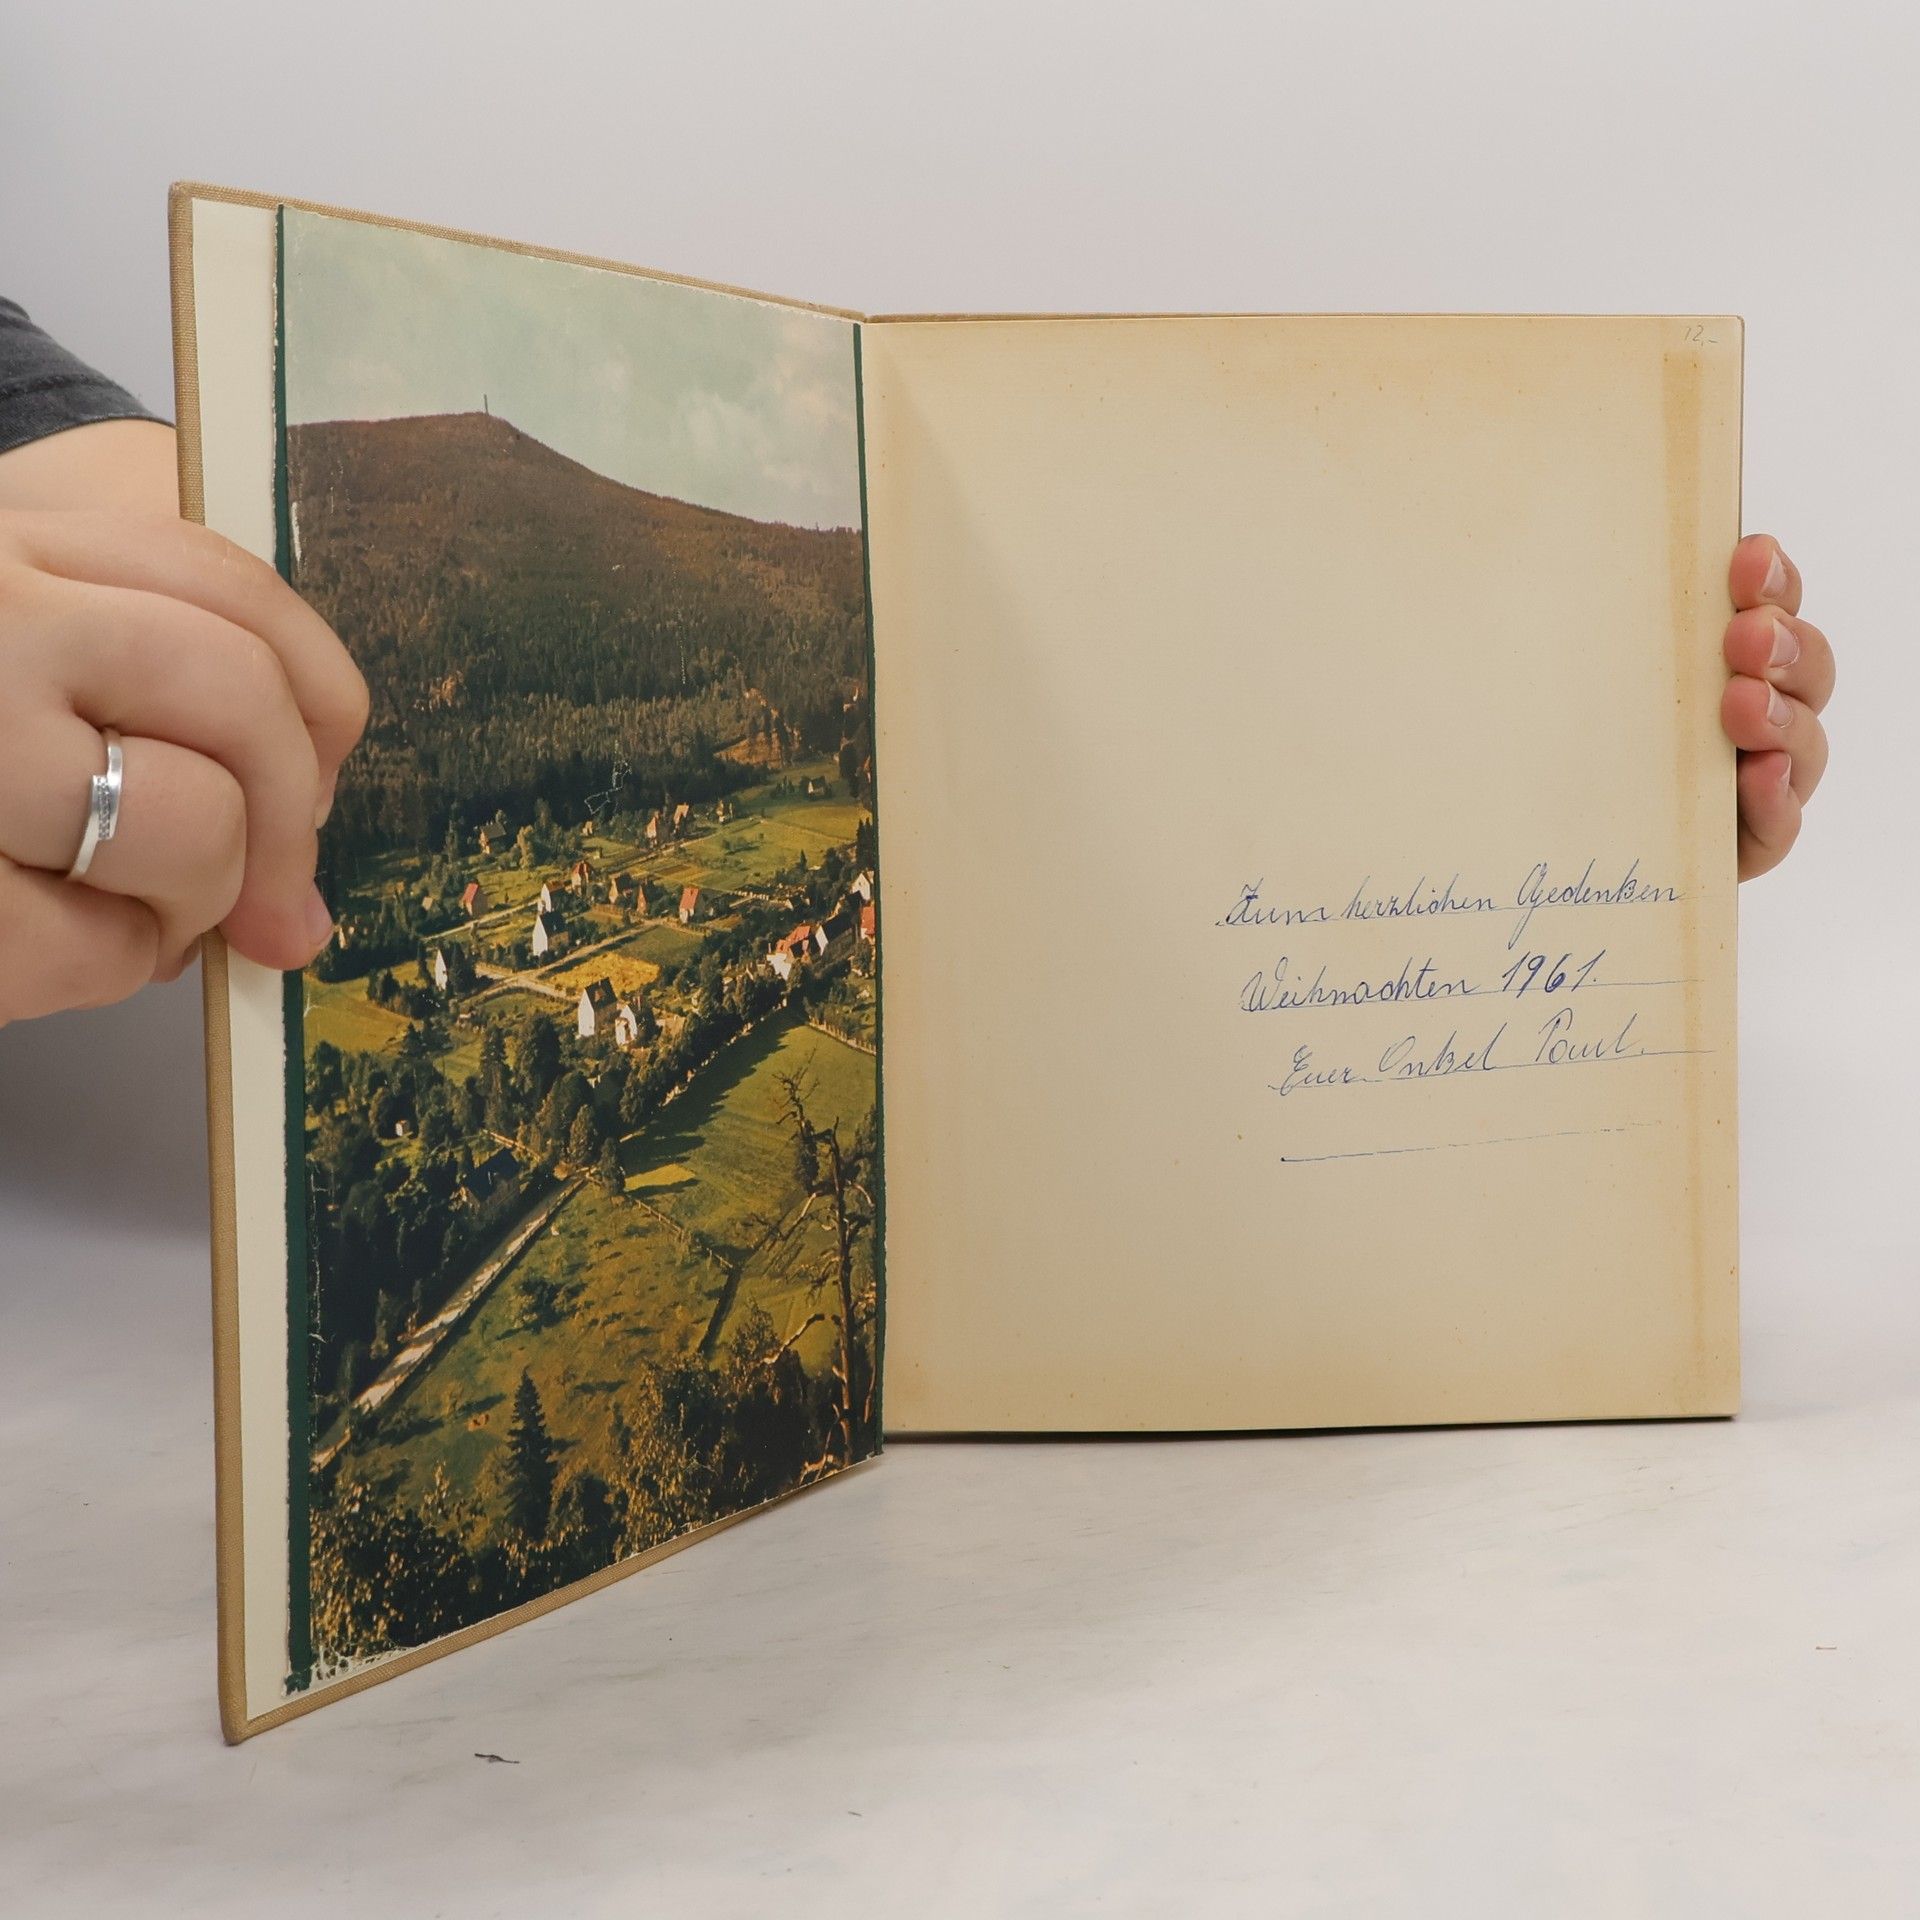 12,-
Zum herzlichen Gedenken
Weihnachten 1961.
Euer Onkel Paul.